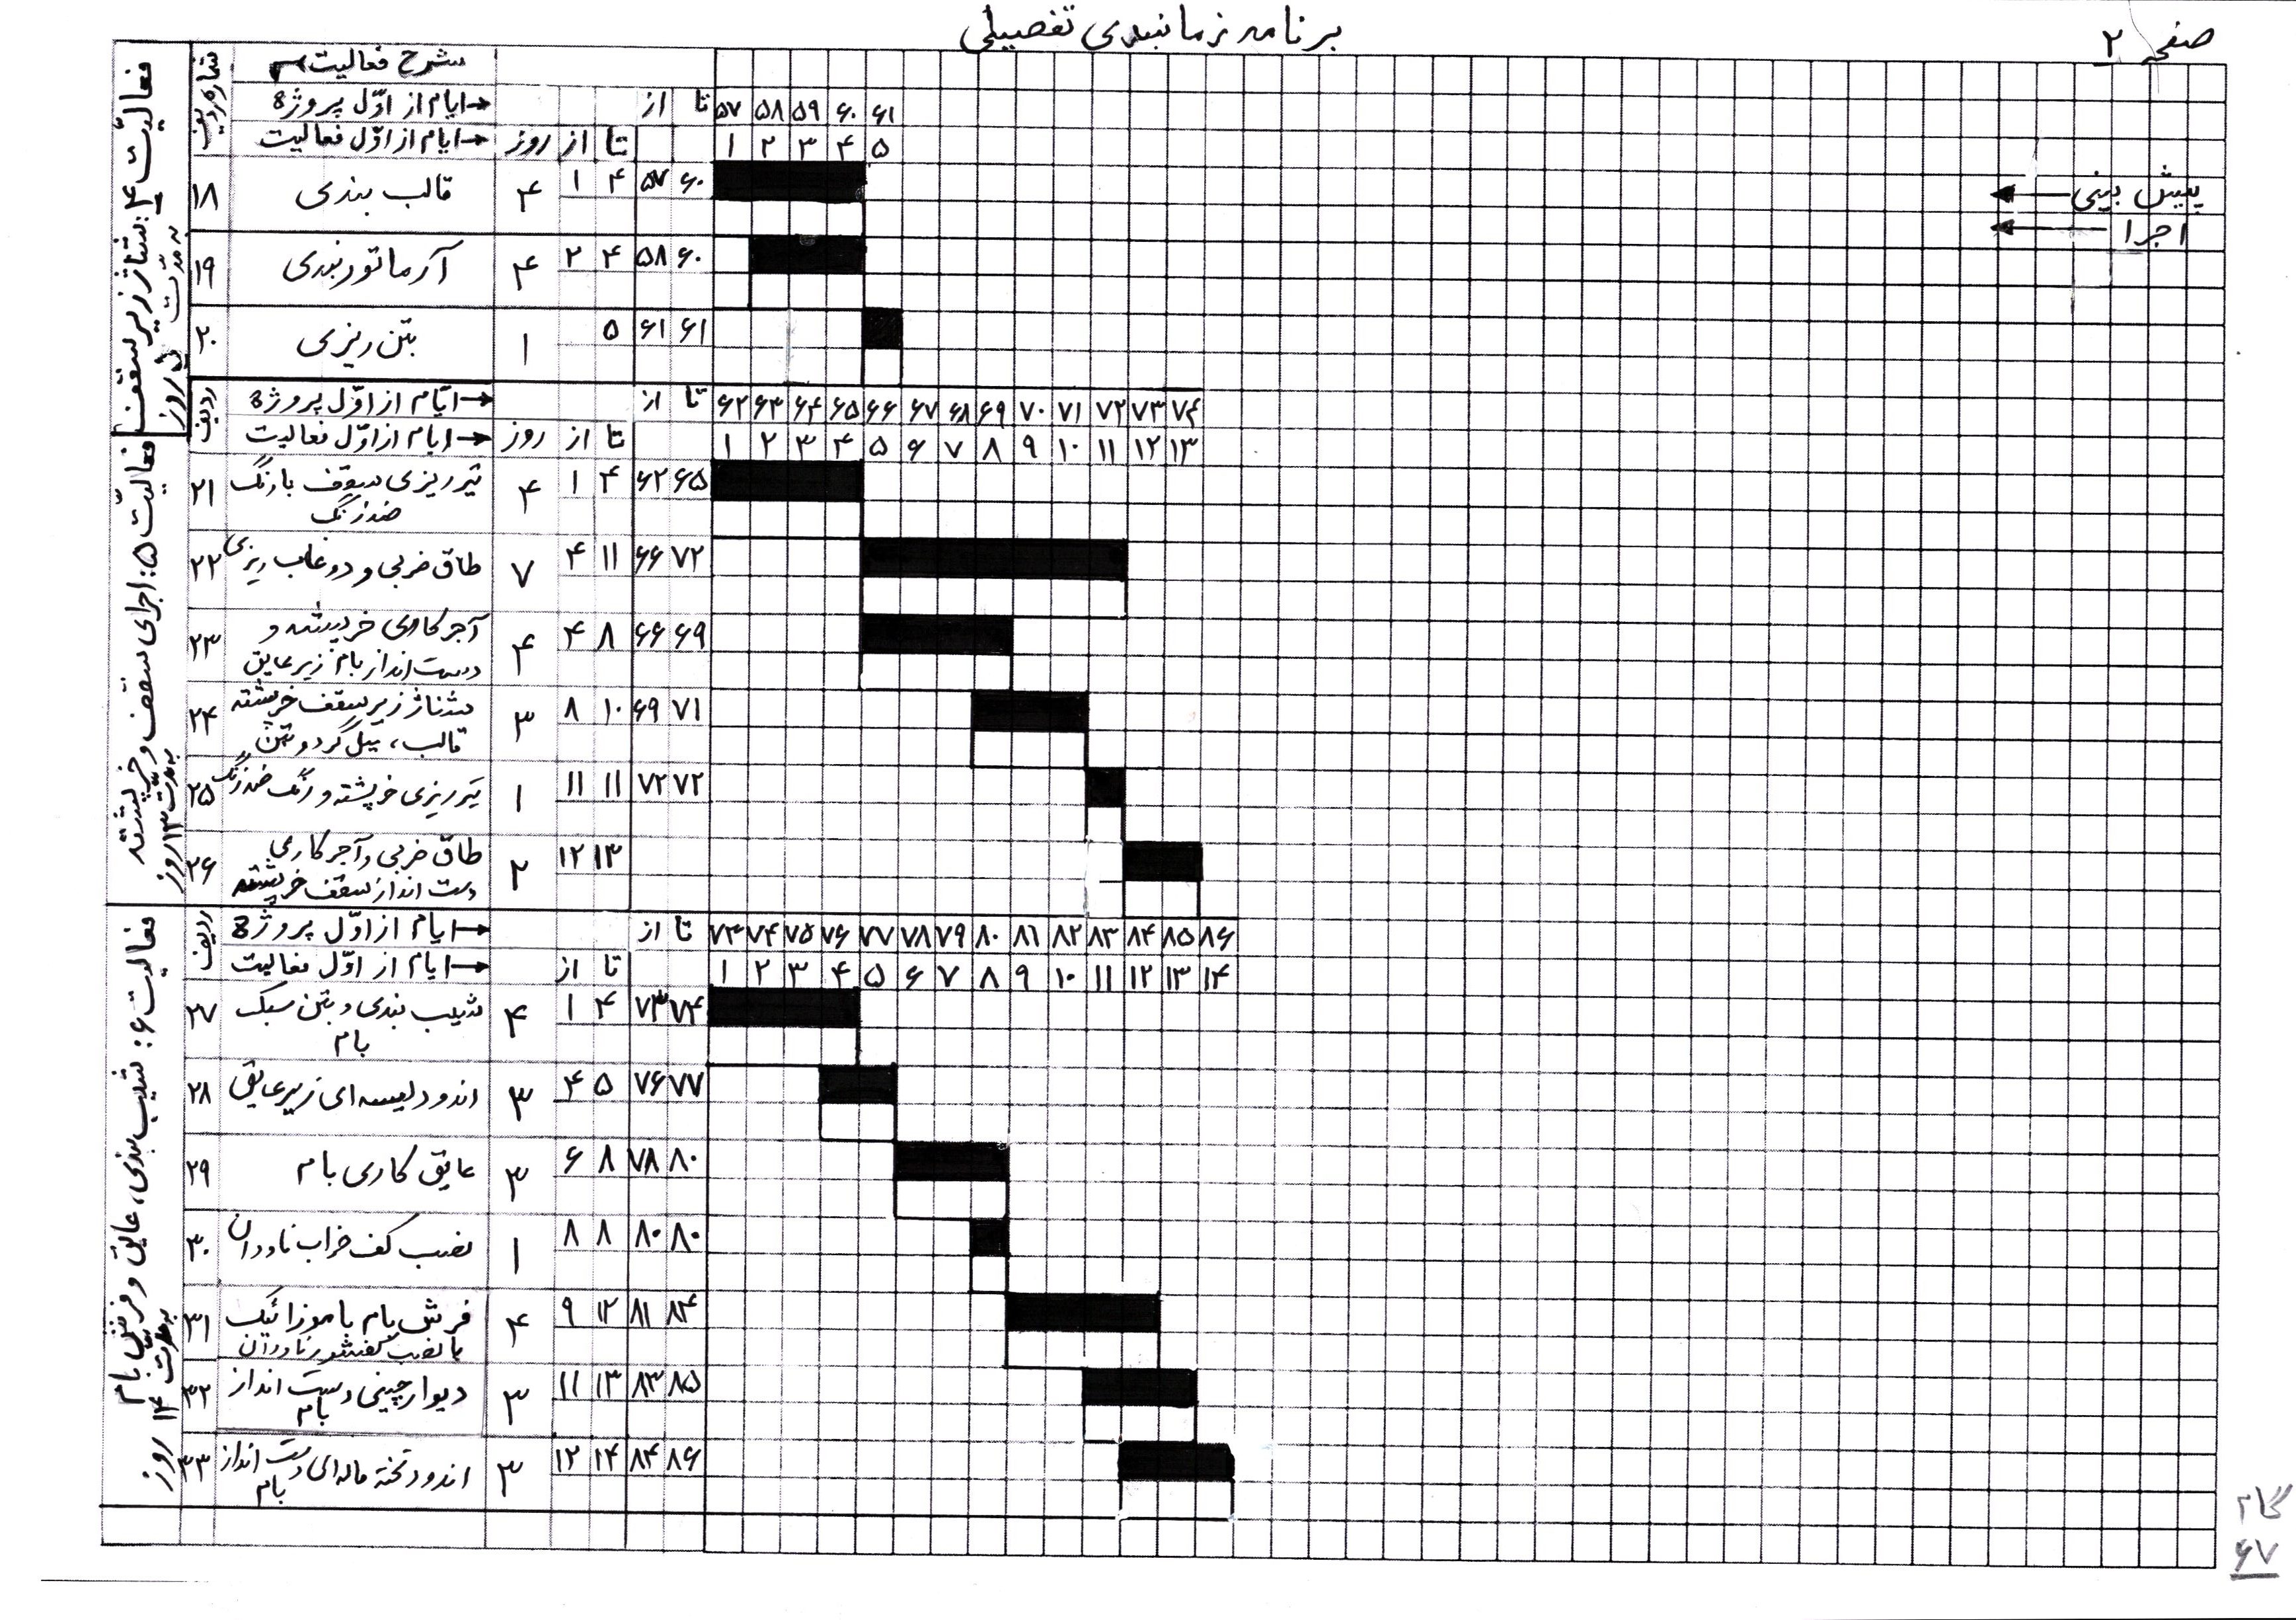 برنامه زمانبندی تفصیلی
صفحه ۲
پیش بینی
اجرا
فعالیت ۴: شناژ زیر سقف
به مدت ۵ روز
شماره ردیف
شرح فعالیت
ایام از اوّل پروژه → از تا ۵۷ ۵۸ ۵۹ ۶۰ ۶۱
ایام از اوّل فعالیت → روز از تا ۱ ۲ ۳ ۴ ۵
۱۸ قالب بندی ۴ ۱ ۴ ۵۷ ۶۰
۱۹ آرماتوربندی ۴ ۲ ۴ ۵۸ ۶۰
۲۰ بتن ریزی ۱ ۵ ۶۱ ۶۱
فعالیّت ۵: اجرای سقف و خرپشته
به مدت ۱۳ روز
ردیف
ایّام از اوّل پروژه → از تا ۶۲ ۶۳ ۶۴ ۶۵ ۶۶ ۶۷ ۶۸ ۶۹ ۷۰ ۷۱ ۷۲ ۷۳ ۷۴
ایام از اوّل فعالیت → روز از تا ۱ ۲ ۳ ۴ ۵ ۶ ۷ ۸ ۹ ۱۰ ۱۱ ۱۲ ۱۳
۲۱ تیرریزی سقف بارنگ ۴ ۱ ۴ ۶۲ ۶۵
ضدزنگ
۲۲ طاق ضربی و دوغاب ریزی ۷ ۴ ۱۱ ۶۶ ۷۲
۲۳ آجرکاری خرپشته و ۴ ۴ ۸ ۶۶ ۶۹
دست انداز بام زیر عایق
۲۴ شناژ زیر سقف خرپشته ۳ ۸ ۱۰ ۶۹ ۷۱
قالب، میل گرد و بتن
۲۵ تیرریزی خرپشته و رنگ ضدزنگ ۱ ۱۱ ۱۱ ۷۲ ۷۲
۲۶ طاق ضربی و آجرکاری ۲ ۱۲ ۱۳
دست انداز سقف خرپشته
فعالیت ۶: شیب بندی، عایق و فرش بام
به مدت ۱۴ روز
ردیف
ایام از اوّل پروژه → از تا ۷۳ ۷۴ ۷۵ ۷۶ ۷۷ ۷۸ ۷۹ ۸۰ ۸۱ ۸۲ ۸۳ ۸۴ ۸۵ ۸۶
ایام از اوّل فعالیت → از تا ۱ ۲ ۳ ۴ ۵ ۶ ۷ ۸ ۹ ۱۰ ۱۱ ۱۲ ۱۳ ۱۴
۲۷ شیب بندی و بتن سبک ۴ ۱ ۴ ۷۳ ۷۴
بام
۲۸ اندود لیسه ای زیر عایق ۳ ۴ ۵ ۷۶ ۷۷
۲۹ عایق کاری بام ۳ ۶ ۸ ۷۸ ۸۰
۳۰ نصب کف خراب ناودان ۱ ۸ ۸ ۸۰ ۸۰
۳۱ فرش بام با موزائیک ۴ ۹ ۱۲ ۸۱ ۸۴
با نصب کفشور ناودان
۳۲ دیوارچینی دست انداز ۳ ۱۱ ۱۳ ۸۳ ۸۵
بام
۳۳ اندود تخته ماله ای دست انداز ۳ ۱۲ ۱۴ ۸۴ ۸۶
بام
۶۷